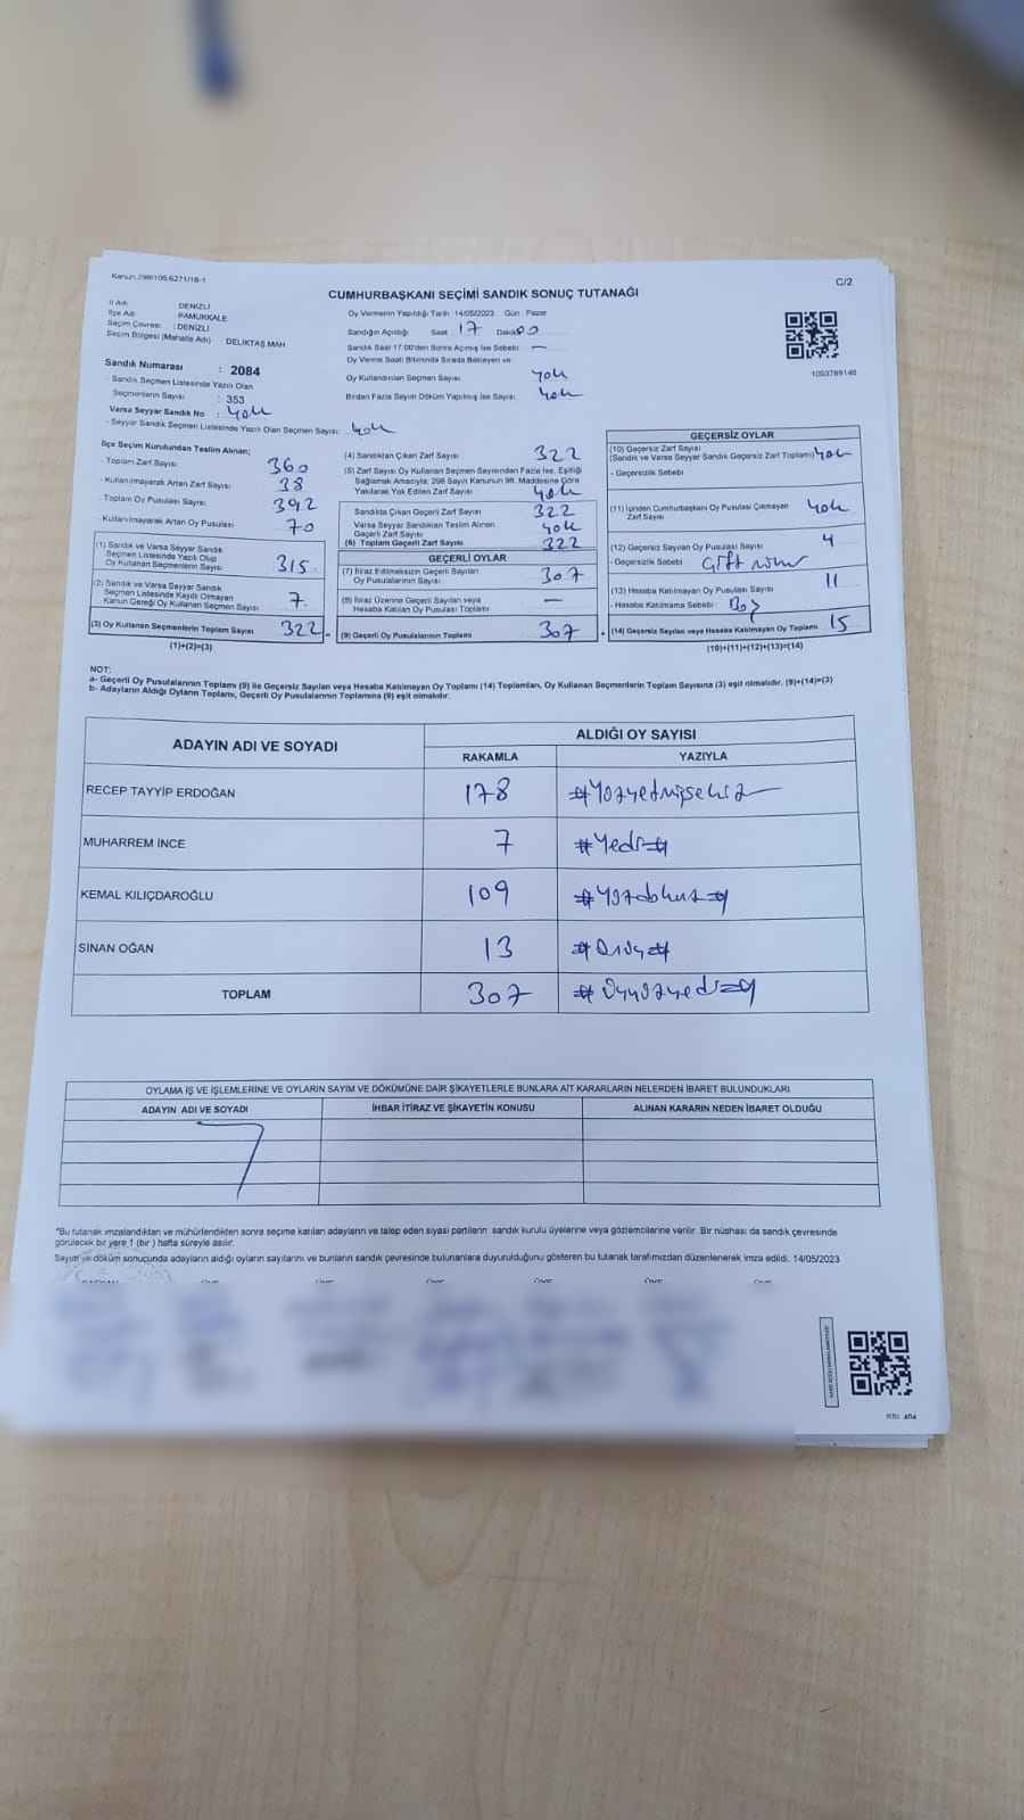 C/2
CUMHURBAŞKANI SEÇİMİ SANDIK SONUÇ TUTANAĞI
İl Adı: DENİZLİ
İlçe Adı: PAMUKKALE
Seçim Çevresi: DENİZLİ
Seçim Bölgesi (Mahalle Adı) : DELİKTAŞ MAH
Sandık Numarası : 2084
- Sandık Seçmen Listesinde Yazılı Olan
Seçmenlerin Sayısı : 353
Varsa Seyyar Sandık No : Yok
- Seyyar Sandık Seçmen Listesinde Yazılı Olan Seçmen Sayısı: Yok
Oy Vermenin Yapıldığı Tarih: 14/05/2023 Gün: Pazar
Sandığın Açılışı Saat 17 Dakika 00
Sandık Saat 17:00'den Sonra Açılmış İse Sebebi: —
Oy Verme Saati Bitiminde Sırada Bekleyen ve
Oy Kullandırılan Seçmen Sayısı Yok
Birden Fazla Sayım Döküm Yapılmış İse Sayısı: Yok
1093789148
İlçe Seçim Kurulundan Teslim Alınan;
- Toplam Zarf Sayısı 360
- Kullanılmayarak Artan Zarf Sayısı 38
- Toplam Oy Pusulası Sayısı 392
- Kullanılmayarak Artan Oy Pusulası 70
(1) Sandık ve Varsa Seyyar Sandık
Seçmen Listesinde Yazılı Olup
Oy Kullanan Seçmenlerin Sayısı 315
(2) Sandık ve Varsa Seyyar Sandık
Seçmen Listesinde Kaydı Olmayan
Kanun Gereği Oy Kullanan Seçmen Sayısı 7
(3) Oy Kullanan Seçmenlerin Toplam Sayısı 322
(1)+(2)=(3)
(4) Sandıktan Çıkan Zarf Sayısı 322
(5) Zarf Sayısı Oy Kullanan Seçmen Sayısından Fazla İse, Eşitliği
Sağlamak Amacıyla, 298 Sayılı Kanunun 98. Maddesine Göre
Yakılarak Yok Edilen Zarf Sayısı Yok
Sandıkta Çıkan Geçerli Zarf Sayısı 322
Varsa Seyyar Sandıktan Teslim Alınan
Geçerli Zarf Sayısı Yok
(6) Toplam Geçerli Zarf Sayısı 322
GEÇERLİ OYLAR
(7) İtiraz Edilmeksizin Geçerli Sayılan
Oy Pusulalarının Sayısı 307
(8) İtiraz Üzerine Geçerli Sayılan veya
Hesaba Katılan Oy Pusulası Toplamı —
(9) Geçerli Oy Pusulalarının Toplamı 307
GEÇERSİZ OYLAR
(10) Geçersiz Zarf Sayısı
(Sandık ve Varsa Seyyar Sandık Geçersiz Zarf Toplamı) Yok
- Geçersizlik Sebebi
(11) İçinden Cumhurbaşkanı Oy Pusulası Çıkmayan
Zarf Sayısı Yok
(12) Geçersiz Sayılan Oy Pusulası Sayısı 4
- Geçersizlik Sebebi Çift mühür
(13) Hesaba Katılmayan Oy Pusulası Sayısı 11
- Hesaba Katılmama Sebebi: Boş
(14) Geçersiz Sayılan veya Hesaba Katılmayan Oy Toplamı 15
(10)+(11)+(12)+(13)=(14)
NOT:
a- Geçerli Oy Pusulalarının Toplamı (9) ile Geçersiz Sayılan veya Hesaba Katılmayan Oy Toplamı (14) Toplamları, Oy Kullanan Seçmenlerin Toplam Sayısına (3) eşit olmalıdır. (9)+(14)=(3)
b- Adayların Aldığı Oyların Toplamı, Geçerli Oy Pusulalarının Toplamına (9) eşit olmalıdır.
ADAYIN ADI VE SOYADI
ALDIĞI OY SAYISI
RAKAMLA YAZIYLA
RECEP TAYYİP ERDOĞAN 178 #Yüzyetmişsekiz
MUHARREM İNCE 7 #Yedi#
KEMAL KILIÇDAROĞLU 109 #Yüzdokuz#
SİNAN OĞAN 13 #Onüç#
TOPLAM 307 #Üçyüzyedi#
OYLAMA İŞ VE İŞLEMLERİNE VE OYLARIN SAYIM VE DÖKÜMÜNE DAİR ŞİKAYETLERLE BUNLARA AİT KARARLARIN NELERDEN İBARET BULUNDUKLARI
ADAYIN ADI VE SOYADI İHBAR İTİRAZ VE ŞİKAYETİN KONUSU ALINAN KARARIN NEDEN İBARET OLDUĞU
*Bu tutanak imzalandıktan ve mühürlendikten sonra seçime katılan adayların ve talep eden siyasi partilerin sandık kurulu üyelerine veya gözlemcilerine verilir. Bir nüshası da sandık çevresinde
görülecek bir yere 1 (bir) hafta süreyle asılır.
Sayım ve döküm sonucunda adayların aldığı oyların sayılarını ve bunların sandık çevresinde bulunanlara duyurulduğunu gösteren bu tutanak tarafımızdan düzenlenerek imza edildi. 14/05/2023